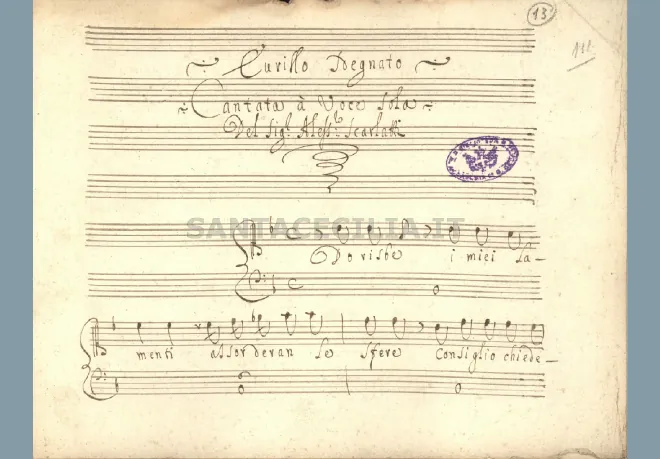 13
Curillo Sdegnato
Cantata à Voce sola
Del Sig.r Aless.o Scarlatti
SANTACECILIA.IT
Dorisbe i miei la-
menti assorderan le sfere Consiglio chiede-